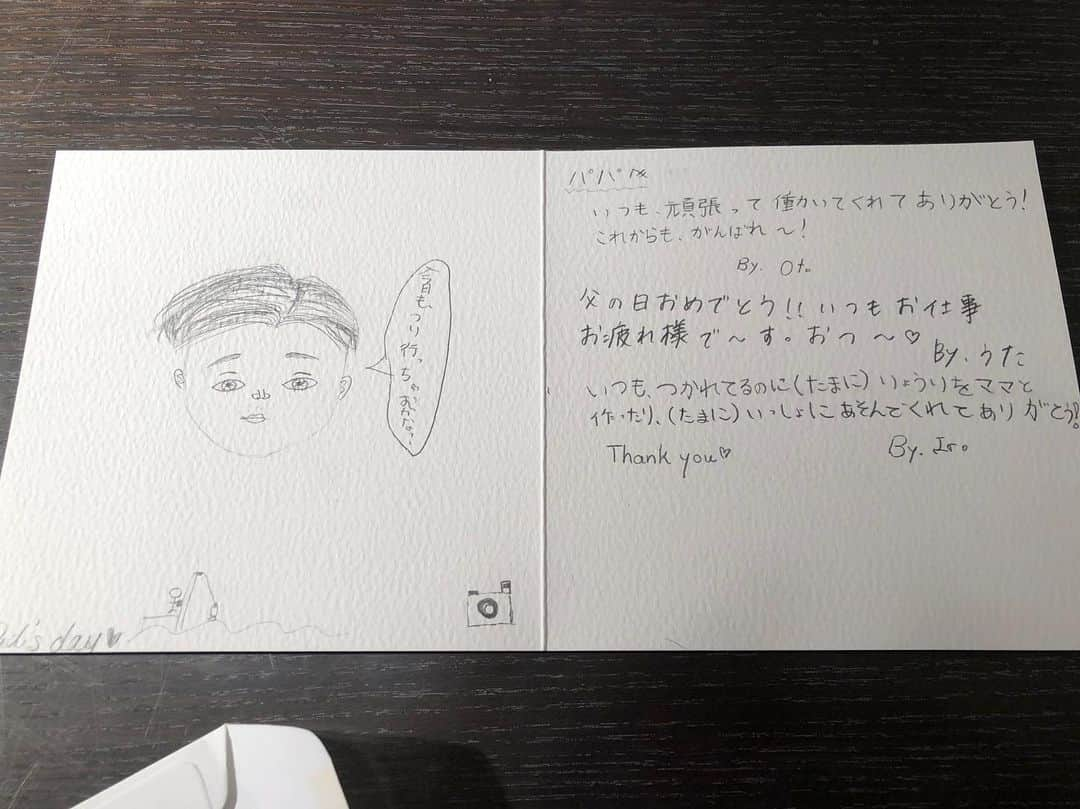 今月も、つり行っちゃおかな〜
's day♥
パパへ
いつも、頑張って働いてくれてありがとう!
これからも、がんばれ〜!
By. Oto
父の日おめでとう!!いつもお仕事
お疲れ様で〜す。おつ〜♡
By. うた
いつも、つかれてるのに(たまに)りょうりをママと
作ったり、(たまに)いっしょにあそんでくれてありがとう!
Thank you♡
By. Iro